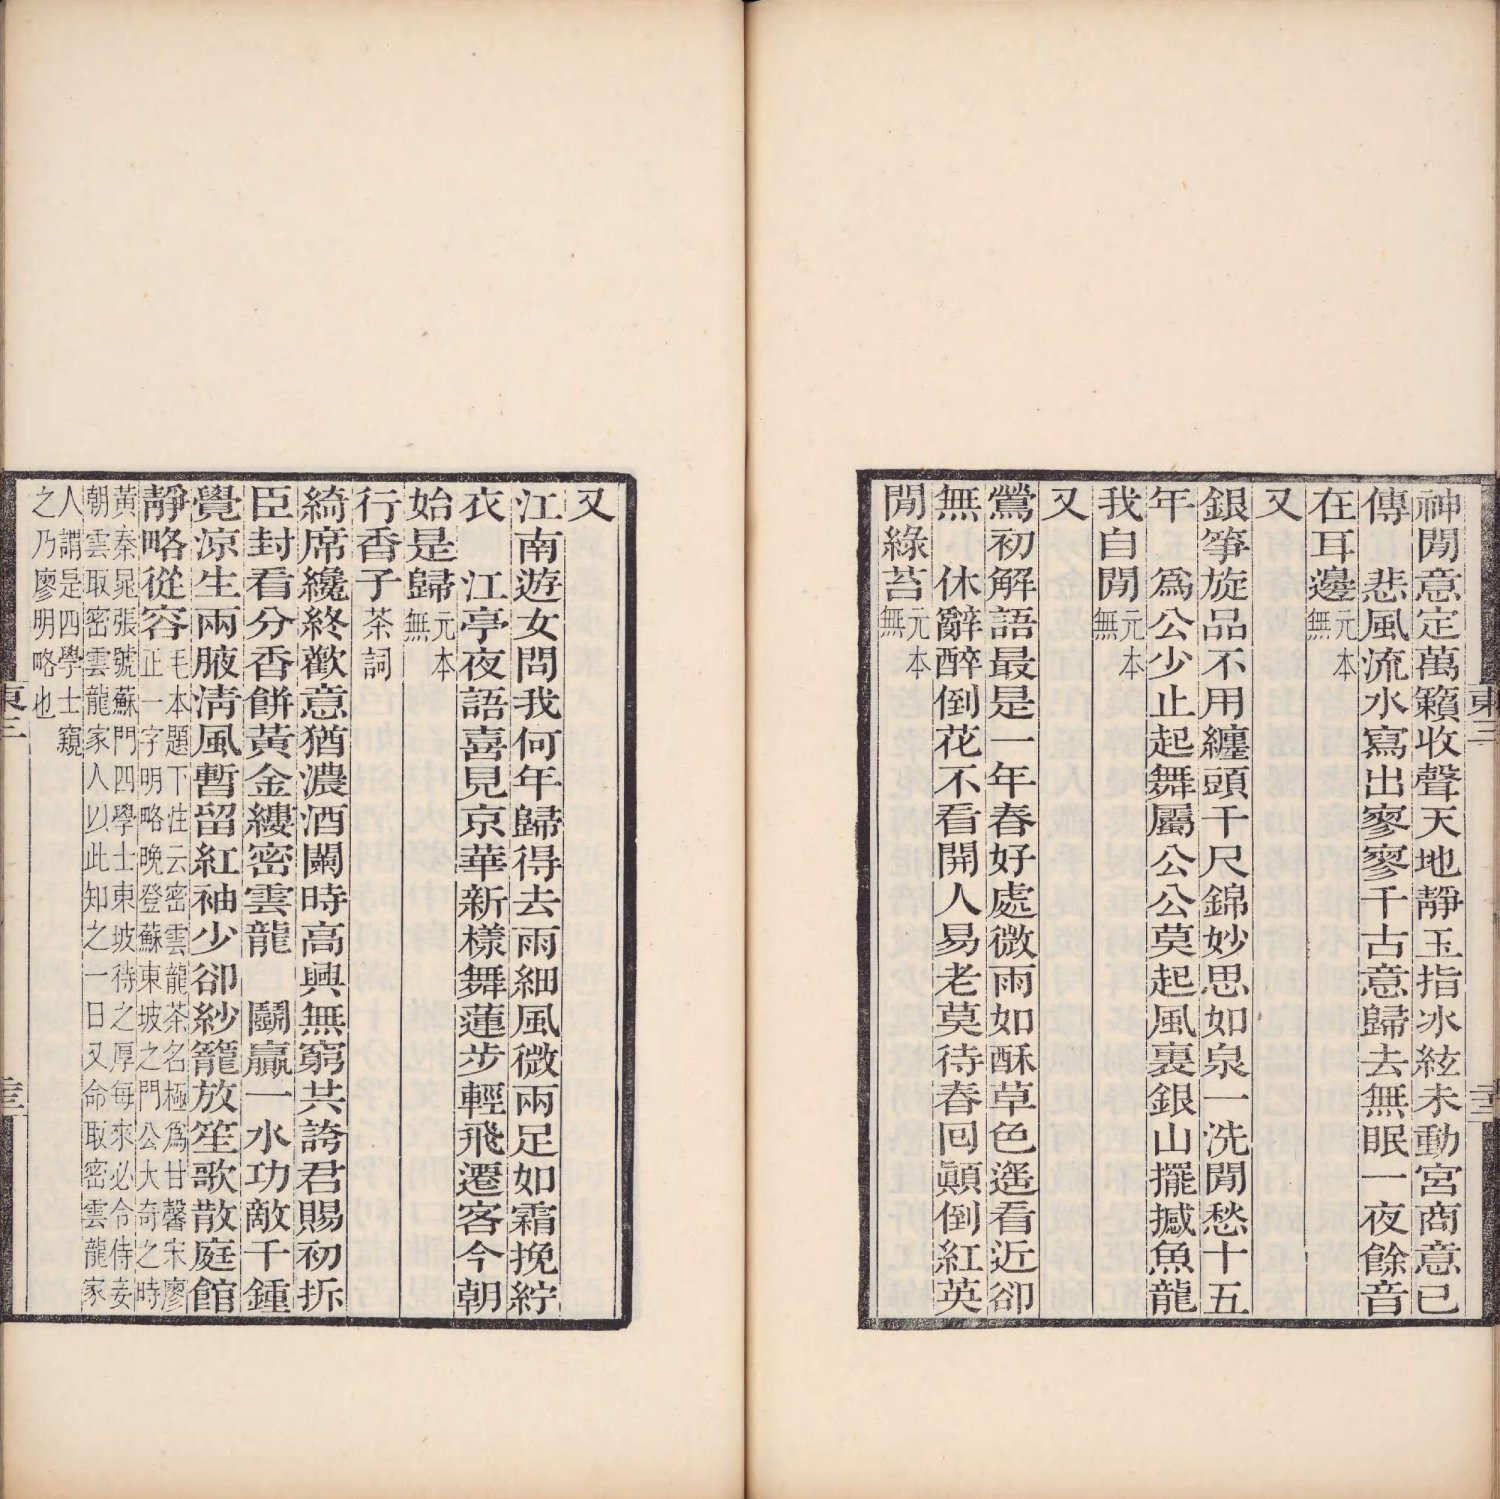 神閒意定萬籟收聲天地靜玉指冰絃未動宮商意已
傳　悲風流水寫出寥寥千古意歸去無眠一夜餘音
在耳邊元本無
又
銀箏旋品不用纏頭千尺錦妙思如泉一洗閒愁十五
年　爲公少止起舞屬公公莫起風裏銀山擺撼魚龍
我自閒元本無
又
鶯初解語最是一年春好處微雨如酥草色遙看近卻
無　休辭醉倒花不看開人易老莫待春回顚倒紅英
閒綠苔元本無
又
江南遊女問我何年歸得去雨細風微兩足如霜挽紵
衣　江亭夜語喜見京華新樣舞蓮步輕飛遷客今朝
始是歸元本無
行香子茶詞
綺席纔終歡意猶濃酒闌時高興無窮共誇君賜初拆
臣封看分香餅黃金縷密雲龍　鬭贏一水功敵千鍾
覺涼生兩腋淸風暫留紅袖少卻紗籠放笙歌散庭館
靜略從容毛本題下注云密雲龍茶名極爲甘馨宋廖
正一字明略晚登蘇東坡之門公大奇之時
黃秦晁張號蘇門四學士東坡待之厚每來必令侍妾
朝雲取密雲龍家人以此知之一日又命取密雲龍家
人謂是四學士窺
之乃廖明略也